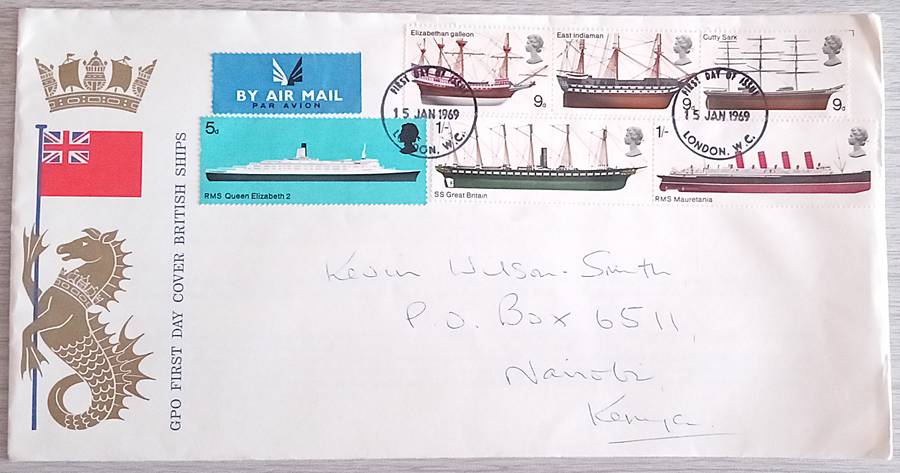 Elizabethan galleon
9d
East Indiaman
9d
Cutty Sark
9d
BY AIR MAIL
PAR AVION
FIRST DAY OF ISSUE
15 JAN 1969
LONDON. W.C.
FIRST DAY OF ISSUE
15 JAN 1969
LONDON. W.C.
5d
RMS Queen Elizabeth 2
1/-
SS Great Britain
1/-
RMS Mauretania
GPO FIRST DAY COVER BRITISH SHIPS
Kevin Wilson-Smith
P.O. Box 6511
Nairobi
Kenya